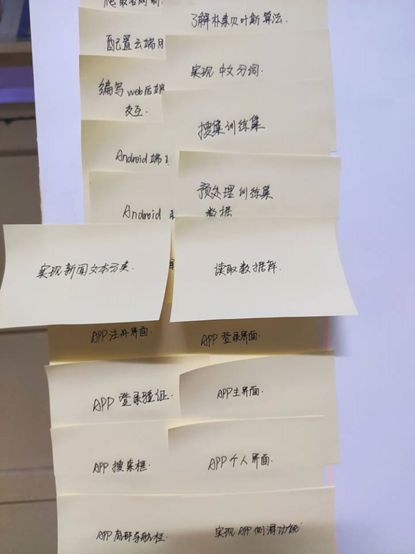 了解朴素贝叶斯算法.
配置云端
实现中文分词.
编写web后端
交互.
搜集训练集
Android 端
预处理训练集
数据
Android
实现新闻文本分类.
读取数据库.
APP 注册界面.
APP 登录界面.
APP 登录验证.
APP主界面.
APP 搜索框.
APP 个人界面.
APP 底部导航栏.
实现APP侧滑功能.